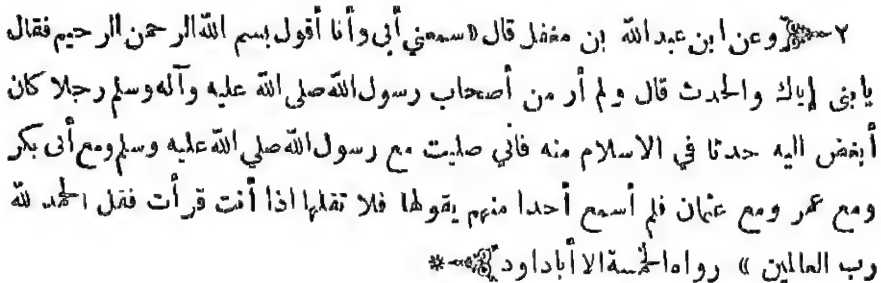 ٢ ﴿وعن ابن عبد الله بن مغفل قال «سمعني أبي وأنا أقول بسم الله الرحمن الرحيم فقال
يا بنى إياك والحدث قال ولم أر من أصحاب رسول الله صلى الله عليه وآله وسلم رجلا كان
أبغض اليه حدثا في الاسلام منه فاني صليت مع رسول الله صلي الله عليه وسلم ومع أبى بكر
ومع عمر ومع عثمان فلم أسمع أحدا منهم يقولها فلا تقلها اذا أنت قرأت فقل الحمد لله
رب العالمين » رواه الخمسة الا أبا داود﴾ *